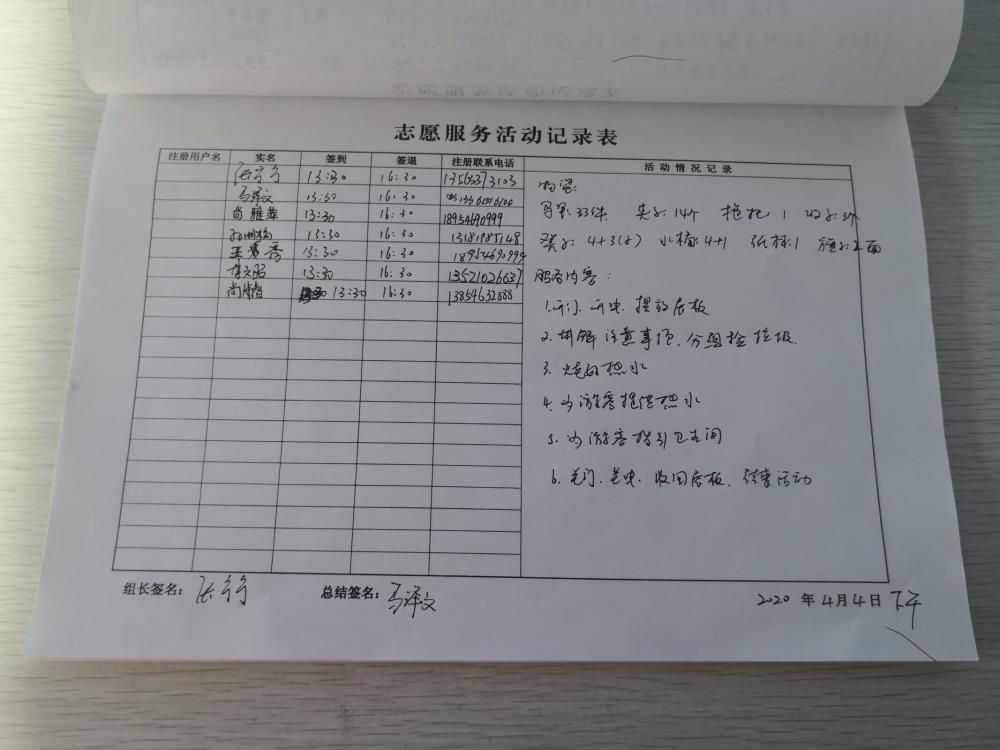 志愿服务活动记录表
注册用户名 实名 签到 签退 注册联系电话 活动情况记录
13:30 16:30 13563373103
马译文 13:30 16:30
尚雅萍 13:30 16:30 18954690999
13:30 16:30 13181985148
秀 13:30 16:30 18954690999
李文昭 13:30 16:30 13521026637
尚 13:30 16:30 13854632888
物资:
33件 夹子:14个 拖把:1
凳子:4+3(小) 水桶:4+1 面
服务内容:
1.开门、开电、摆放展板
2.讲解注意事项、分组捡垃圾
3.烧好热水
4.为游客提供热水
5.为游客指引卫生间
6.关门、关电、收回展板、结束活动
组长签名: 总结签名:马译文
2020年4月4日下午